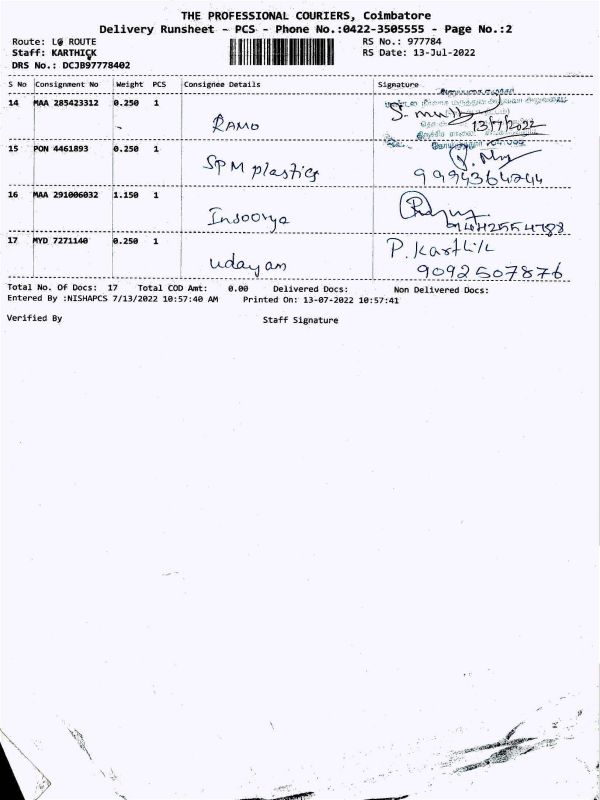 THE PROFESSIONAL COURIERS, Coimbatore
Delivery Runsheet - PCS - Phone No.:0422-3505555 - Page No.:2
Route: LO ROUTE
RS No.: 977784
Staff: KARTHICK
RS Date: 13-Jul-2022
DRS No.: DCJB97778402
S No Consignment No Weight PCS Consignee Details Signature
14 MAA 285423312 0.250 1 RAMO S. muth
13/7/2022
15 PON 4461893 0.250 1 SPM plastics
9994364244
16 MAA 291006032 1.150 1 Insoorya
17 MYD 7271140 0.250 1 udayam P. Karthik
9092507876
Total No. Of Docs: 17 Total COD Amt: 0.00 Delivered Docs: Non Delivered Docs:
Entered By :NISHAPCS 7/13/2022 10:57:40 AM Printed On: 13-07-2022 10:57:41
Verified By Staff Signature